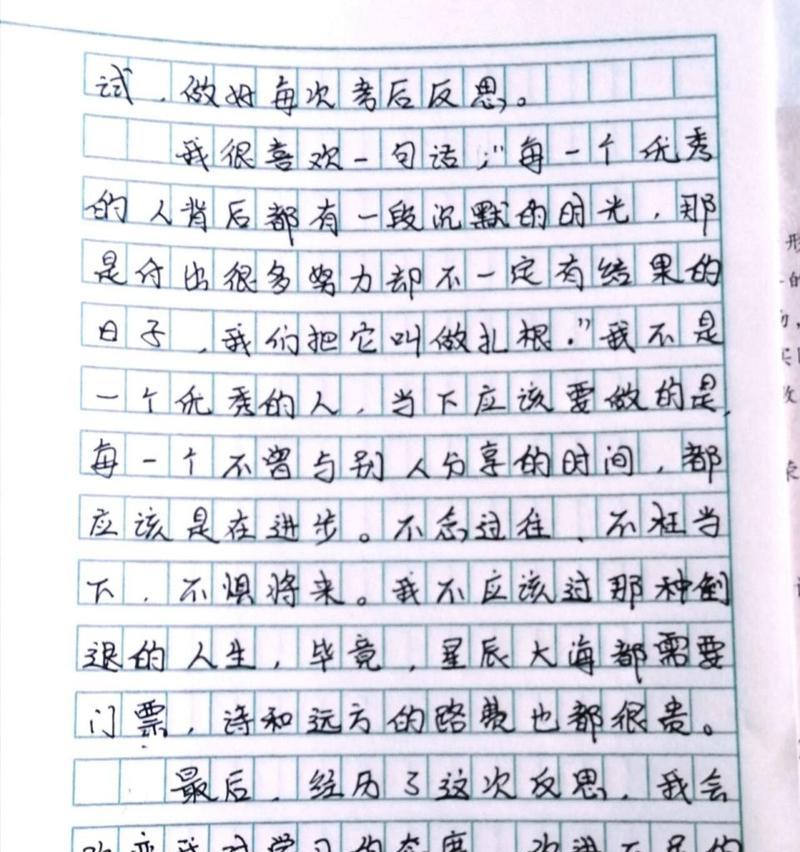 试，做好每次考后反思。
我很喜欢一句话；“每一个优秀
的人背后都有一段沉默的时光，那
是付出很多努力却不一定有结果的
日子，我们把它叫做扎根。”我不是
一个优秀的人，当下应该要做的是，
每一个不曾与别人分享的时间，都
应该是在进步。不念过往、不枉当
下，不惧将来。我不应该过那种倒
退的人生，毕竟，星辰大海都需要
门票，诗和远方的路费也都很贵。
最后，经历了这次反思，我会
改变我对学习的态度，改进不足的